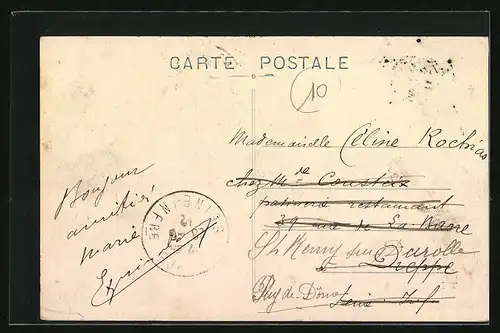 CARTE POSTALE
10
Mademoiselle Céline Rochias
chez Mme Coustex
restaurant
29 rue de La Barre
St Remy sur Durolle
à Dieppe
Puy-de-Dôme Seine Inf
Bonjour
amitiés
Marie
SEINE-INFRE